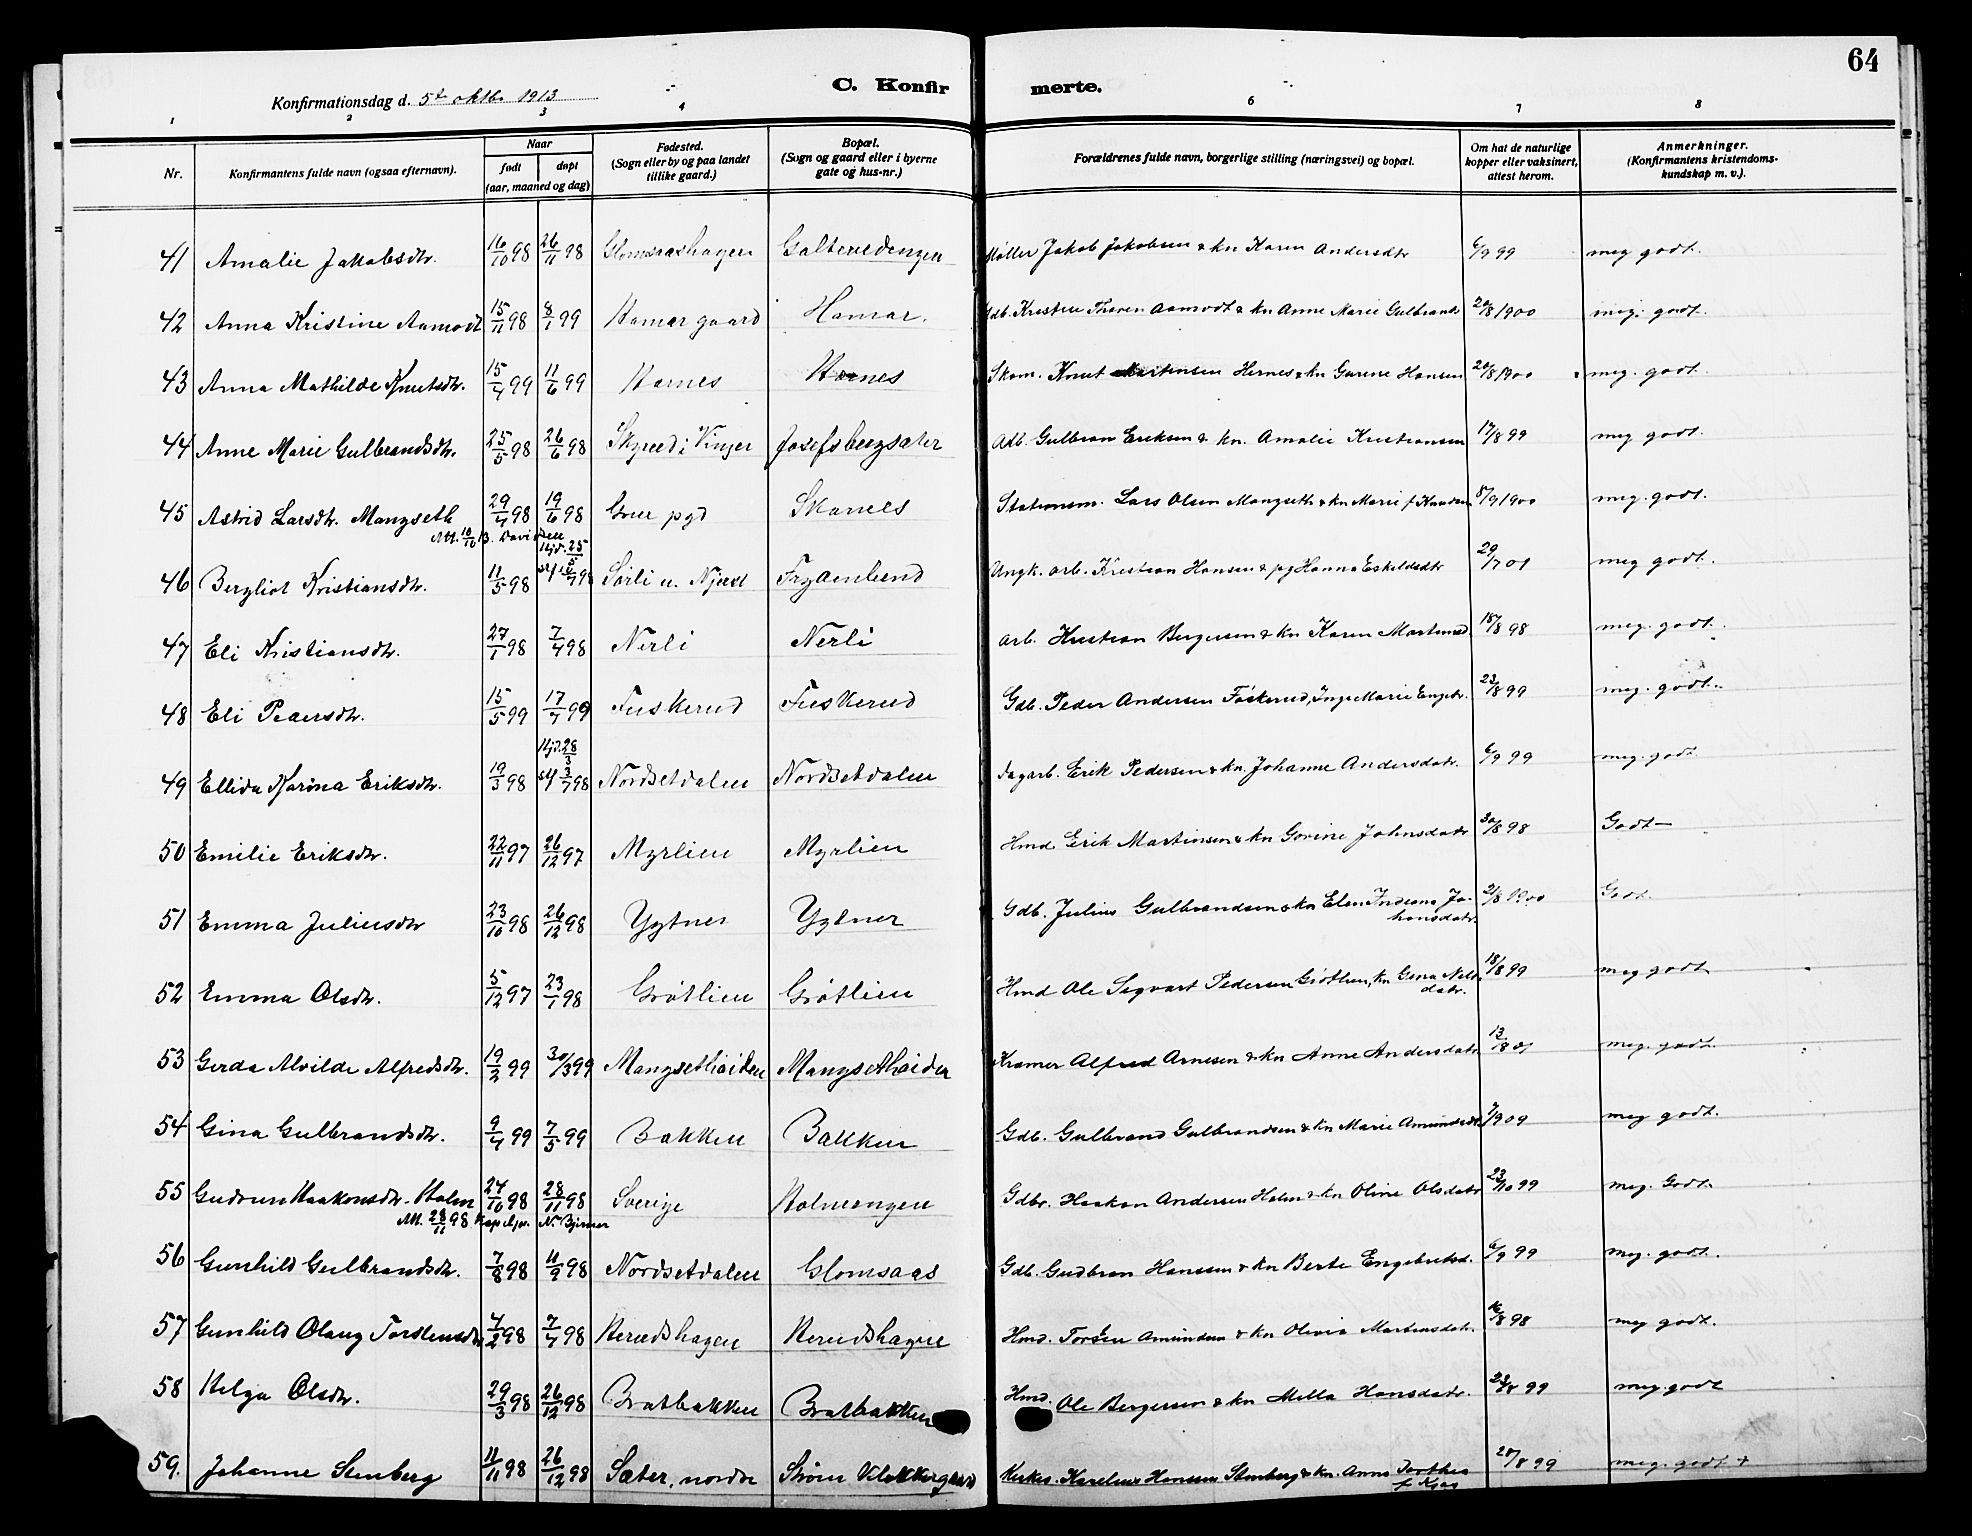 64
C. Konfirmerte.
Konfirmationsdag d. 5t oktbr 1913
1 2 3 4 6 7 8
Nr.
Konfirmantens fulde navn (ogsaa efternavn).
Naar
født
døpt
(aar, maaned og dag)
Fødested.
(Sogn eller by og paa landet
tillike gaard.)
Bopæl.
(Sogn og gaard eller i byerne
gate og hus-nr.)
Forældrenes fulde navn, borgerlige stilling (næringsvei) og bopæl.
Om hat de naturlige
kopper eller vaksinert,
attest herom.
Anmerkninger.
(Konfirmantens kristendoms-
kundskap m. v.).
41 Amalie Jakobsdtr. 16/10 98 26/11 98 Glomsaashagen Møller Jakob Jakobsen & kn Karen Andersdtr 6/9 99 meg godt.
42 Anna Kristine Aamodt 15/11 98 8/1 99 Hamar gaard Hamar. Gdb. Aamodt & kn Anne Marie Gulbrands 20/8 1900 meg. godt.
43 Anna Mathilde Knutsdtr. 15/4 99 11/6 99 Hornes Hornes Skom. Knut Martinsen Hernes & kn Gurine Hansen 20/8 1900 meg. godt.
44 Anne Marie Gulbrandsdtr. 25/5 98 26/6 98 i Vinger Josefsbergsæter Gulbran Eriksen & kn. Amalie Kristiansen 17/8 99 meg godt.
45 Astrid Larsdtr. Mangseth 29/4 98 19/6 98 Grue pgd Skanes Stationsm. Lars Olsen Mangseth & kn Marie f. Knudsen 8/9 1900 meg. godt.
Att. 10/10 13. Davidsen
Hjd. 25/5
46 Bergliot Kristiansdtr. 11/5 98 st/k 98 Sørli u. Frydenlund Ungk. arb. Kristian Hansen & pg Hanna Eskildsdtr 29/7 01 meg godt.
47 Eli Kristiansdtr. 27/1 98 7/4 98 Nerli Nerli arb. Kristian Bergersen & kn Karen Martinsd 18/8 98 meg. godt.
48 Eli Pedersdtr. 15/5 99 17/7 99 Fuskerud Fuskerud Gdb. Peder Andersen Føskerud, Inge Marie Engebr. 23/8 99 meg. godt.
Hjd. 28/3
49 Ellida Karina Eriksdtr. 19/3 98 3/7 98 Nordsetdalen Nordsetdalen Dagarb. Erik Pedersen & kn. Johanne Andersdatr. 6/9 99 meg. godt.
50 Emilie Eriksdtr. 22/11 97 26/12 97 Myrlien Myrlien Hmd Erik Martinsen & kn Gorine Johnsdatr 30/8 98 Godt
51 Emma Juliusdtr 23/10 98 26/12 98 Ygtner Ygtner Gdb. Julius Gulbrandsen & kn Elen Indiana Jo-
hansdatr. 2/8 1900 Godt
52 Emma Olsdtr. 5/12 97 23/1 98 Grøtlien Grøtlien Hmd Ole Sigvart Pedersen Grøtlien, kn Gina Nils
datr. 18/8 99 meg godt
53 Gerda Alvilde Alfredsdtr. 19/2 99 30/3 99 Mangsethøiden Mangsethøiden Kramer Alfred Arnesen & kn Anne Andersdatr 13/8 01 meg. godt.
54 Gina Gulbrandsdtr. 9/4 99 7/5 99 Bakken Bakken Gdb. Gulbrand Gulbrandsen & kn Marie Amundsdt. 7/9 09 meg godt.
55 Gudrun Haakonsdtr. Holm 24/10 98 28/11 98 Sverige Holmengen Gdbr. Haakon Andersen Holm & kn Oline Olsdatr 23/10 99 meg. Godt.
Att. 28/11 98
56 Gunhild Gulbrandsdtr. 7/8 98 11/9 98 Nordsetdalen Glomsaas Gdb. Gudbran Hansen & kn Berte Engebretsd. 6/9 99 meg. godt.
57 Gunhild Olaug Torstensdtr 4/2 98 7/4 98 Herudshagen Herudshagen Hmd. Torsten Amundsen & kn Olivia Martinsdatr. 16/8 98 meg godt.
58 Helga Olsdtr. 29/3 98 26/12 98 Bratbakken Bratbakken Hmd. Ole Bergersen & kn Milla Hansdatr. 23/8 99 meg. godt
59. Johanne Stenberg 11/11 98 26/12 98 Sæter, nordre Strøm Kirkes. Karelius Hansen Stenberg & kn. Anna Dorthea
f. 28/8 99 meg. godt +